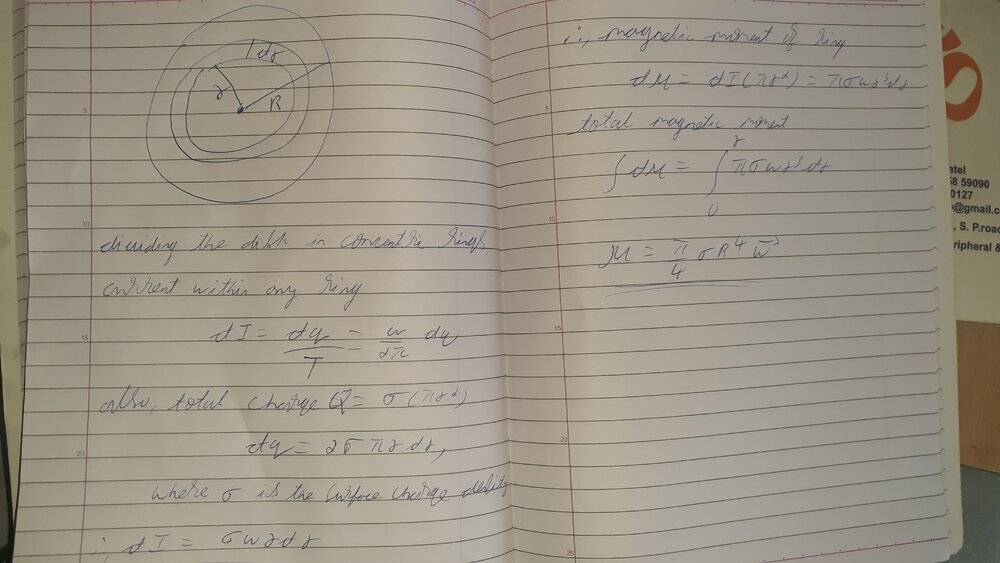 dr
r
R
dividing the disk in concentric rings
current within any ring
dI = dq/T = w/2π dq
also, total charge Q = σ(πr²)
dq = 2σπrdr,
where σ is the surface charge density
∴, dI = σwrdr
∴, magnetic moment of ring
dM = dI(πr²) = πσwr³dr
total magnetic moment
∫dM = ∫₀ʳ πσwr³dr
M = π/4 σR⁴ w⃗
5
10
15
20
5
10
15
20
25
59090
0127
@gmail.c
, S. P.road
ripheral &